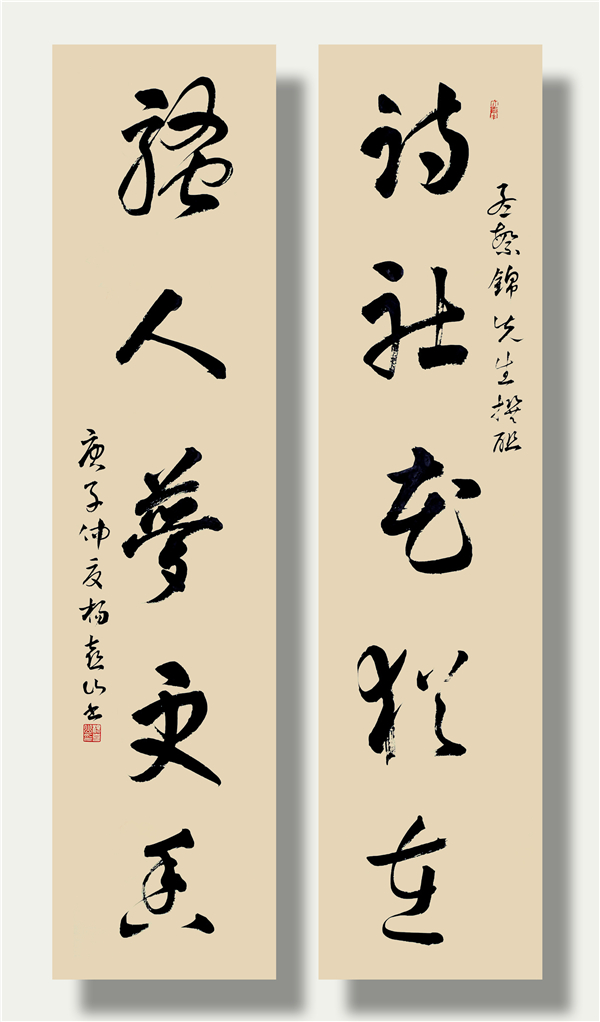 詩社花猶在
孟繁錦先生撰聯
騷人夢更香
庚子仲夏楊喜山書